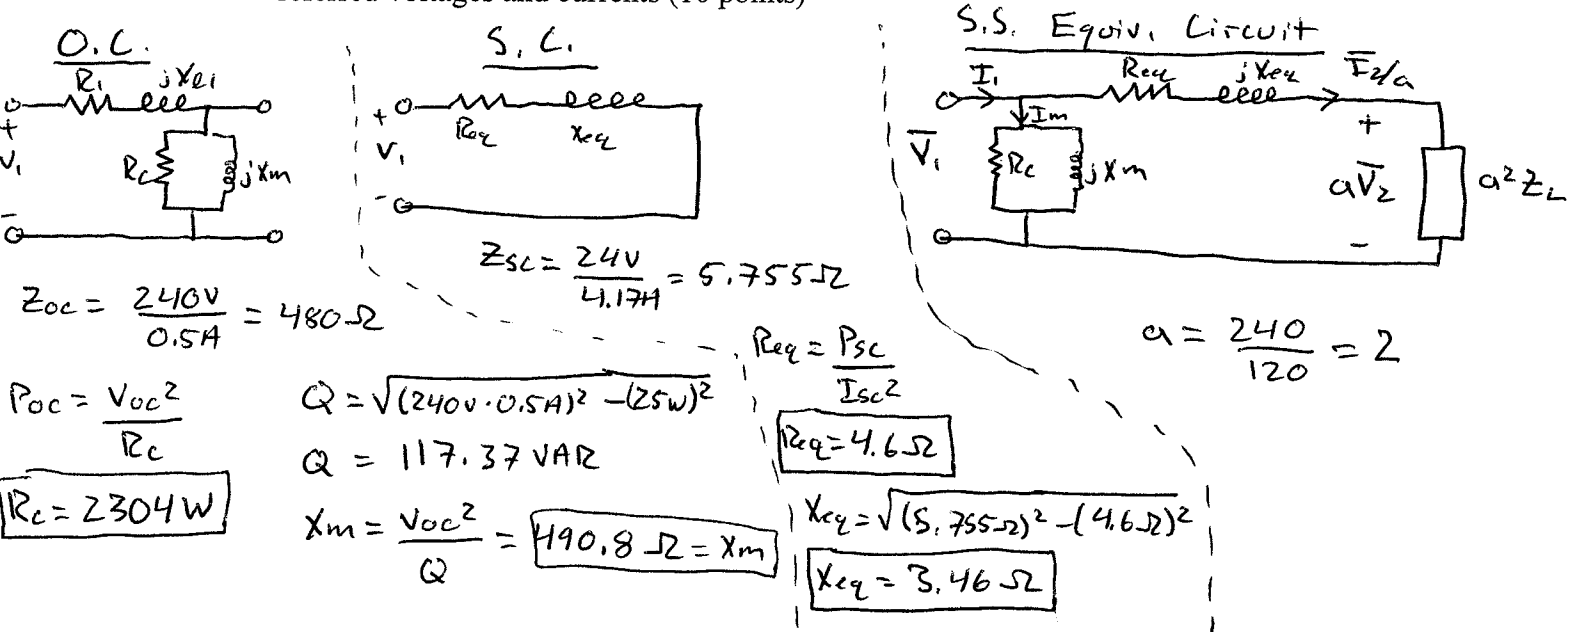 referred voltages and currents (10 points)
O.C.
R₁ jXℓ₁
+
V₁
-
Rc jXm
Zoc = 240V / 0.5A = 480Ω
Poc = Voc² / Rc
Rc = 2304W
Q = √((240V·0.5A)² - (25W)²)
Q = 117.37 VAR
Xm = Voc² / Q = 490.8 Ω = Xm
S.C.
+
V₁
-
Req Xeq
Zsc = 24V / 4.17A = 5.755Ω
Req = Psc / Isc²
Req = 4.6Ω
Xeq = √((5.755Ω)² - (4.6Ω)²
Xeq = 3.46Ω
S.S. Equiv. Circuit
I₁ Req jXeq I̅₂/a
Im
V̅₁ Rc jXm
+
aV̅₂
-
a²Z_L
a = 240 / 120 = 2